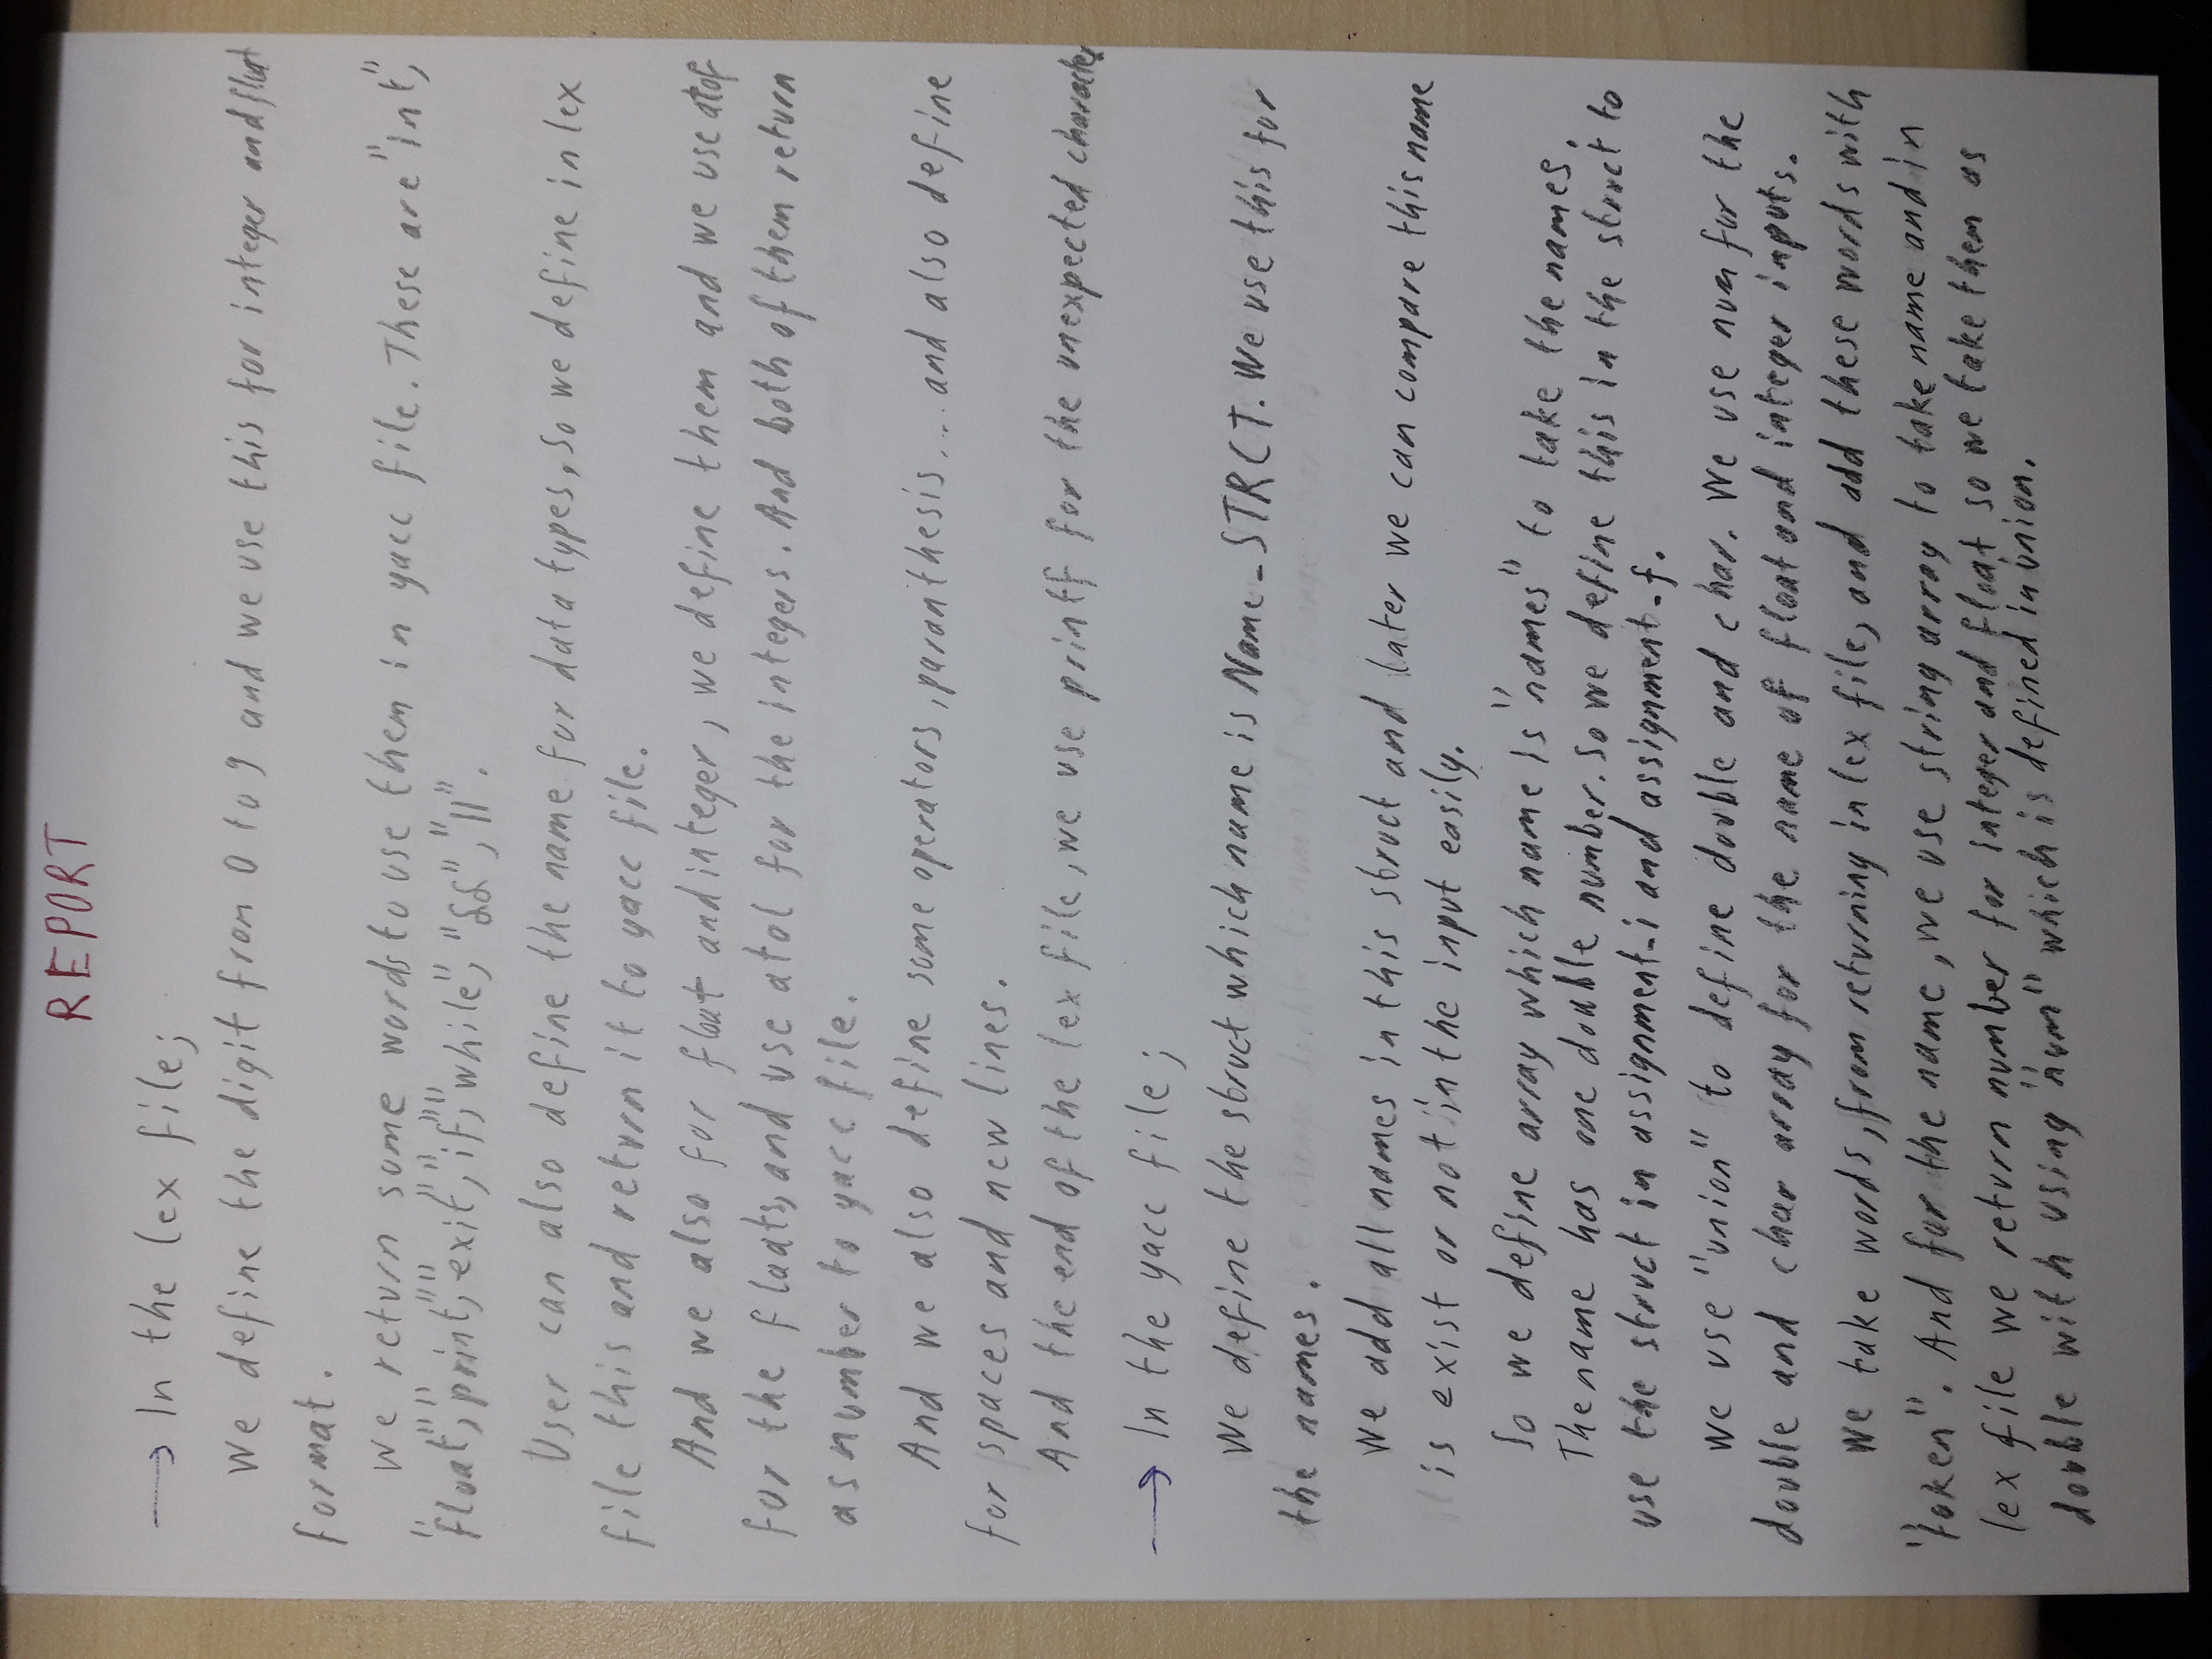 REPORT
→ In the lex file;
We define the digit from 0 to 9 and we use this for integer and float
format.
We return some words to use them in yacc file. These are "int",
"float", "print", "exit", "if", "while", "&&", "||".
User can also define the name for data types, So we define in lex
file this and return it to yacc file.
And we also for float and integer, we define them and we use atof
for the floats, and use atol for the integers. And both of them return
as number to yacc file.
And we also define some operators, paranthesis... and also define
for spaces and new lines.
And the end of the lex file, we use printf for the unexpected character.
→ In the yacc file;
We define the struct which name is Name_STRCT. We use this for
the names.
We add all names in this struct and later we can compare this name
is exist or not in the input easily.
So we define array which name is "names" to take the names.
The name has one double number. So we define this in the struct to
use the struct in assignment_i and assignment_f.
We use "union" to define double and char. We use num for the
double and char array for the name of float and integer inputs.
We take words, from returning in lex file, and add these words with
"token". And for the name, we use string array to take name and in
lex file we return number for integer and float so we take them as
double with using "num" which is defined in union.